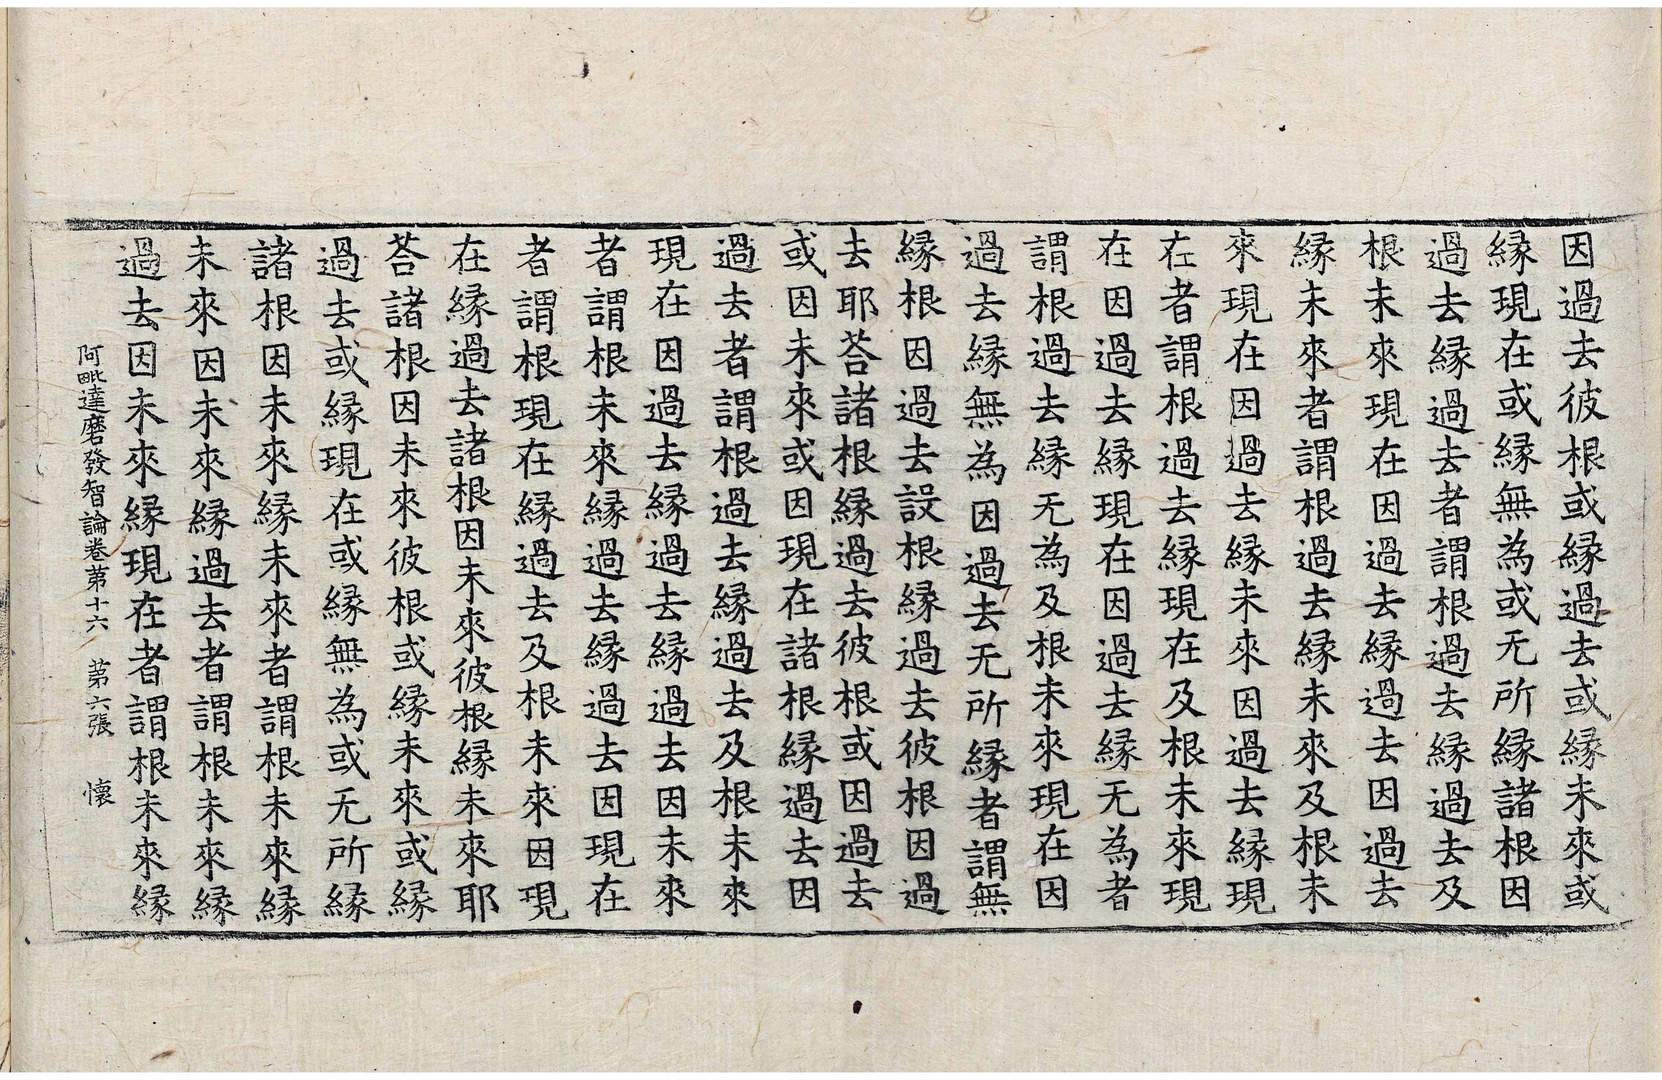 因過去彼根或縁過去或縁未來或
縁現在或縁無為或无所縁諸根因
過去縁過去者謂根過去縁過去及
根未來現在因過去縁過去因過去
縁未來者謂根過去縁未來及根未
來現在因過去縁未來因過去縁現
在者謂根過去縁現在及根未來現
在因過去縁現在因過去縁无為者
謂根過去縁无為及根未來現在因
過去縁無為因過去无所縁者謂無
縁根因過去設根縁過去彼根因過
去耶荅諸根縁過去彼根或因過去
或因未來或因現在諸根縁過去因
過去者謂根過去縁過去及根未來
現在因過去縁過去縁過去因未來
者謂根未來縁過去縁過去因現在
者謂根現在縁過去及根未來因現
在縁過去諸根因未來彼根縁未來耶
荅諸根因未來彼根或縁未來或縁
過去或縁現在或縁無為或无所縁
諸根因未來縁未來者謂根未來縁
未來因未來縁過去者謂根未來縁
過去因未來縁現在者謂根未來縁
阿毗達磨發智論卷苐十六 苐六張 懷